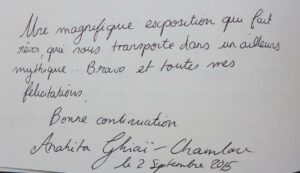 Une magnifique exposition qui fait
rêver, qui nous transporte dans un ailleurs
mythique.. Bravo et toutes mes
félicitations.
Bonne continuation
Anahita Ghiaï - Chamlou
le 2 Septembre 2015